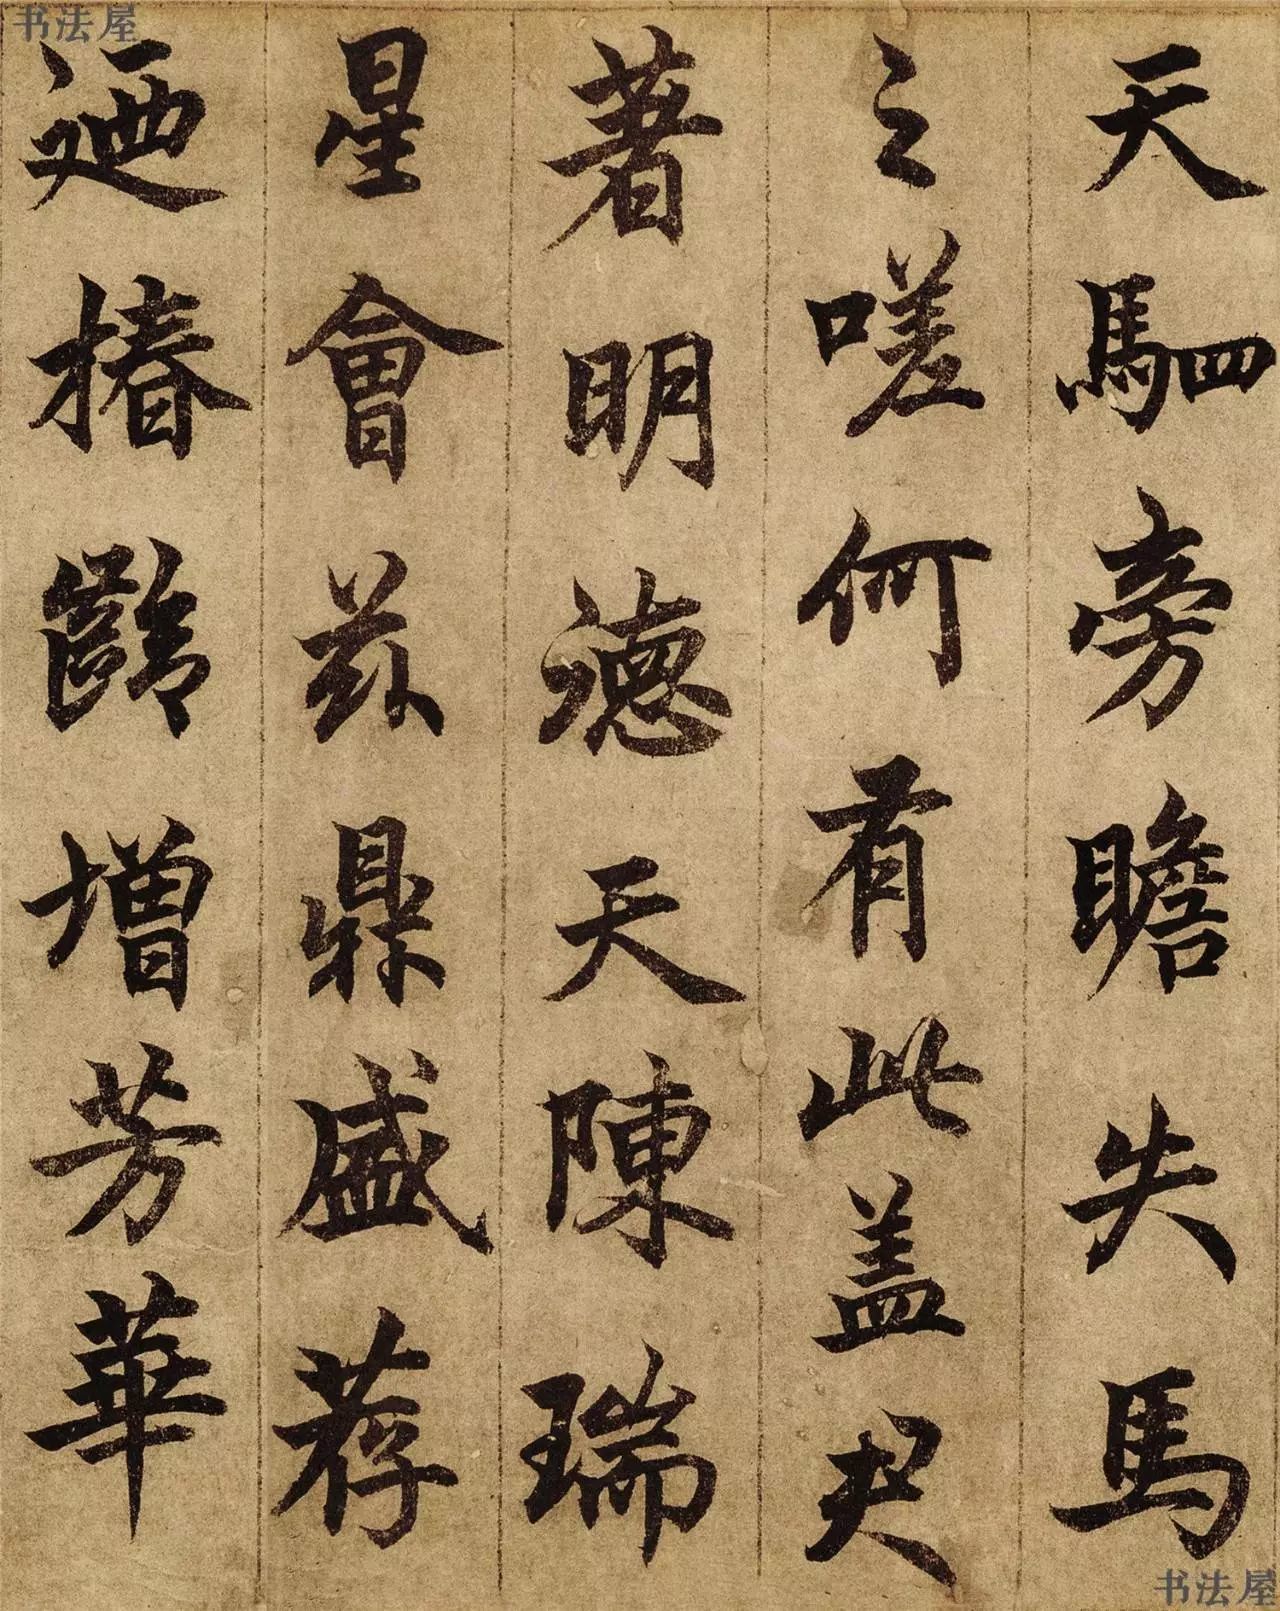 书法屋
天駟旁瞻失馬
之嗟何有此盖
著明德天陳瑞
星會兹鼎盛荐
廼椿齡增芳華
书法屋